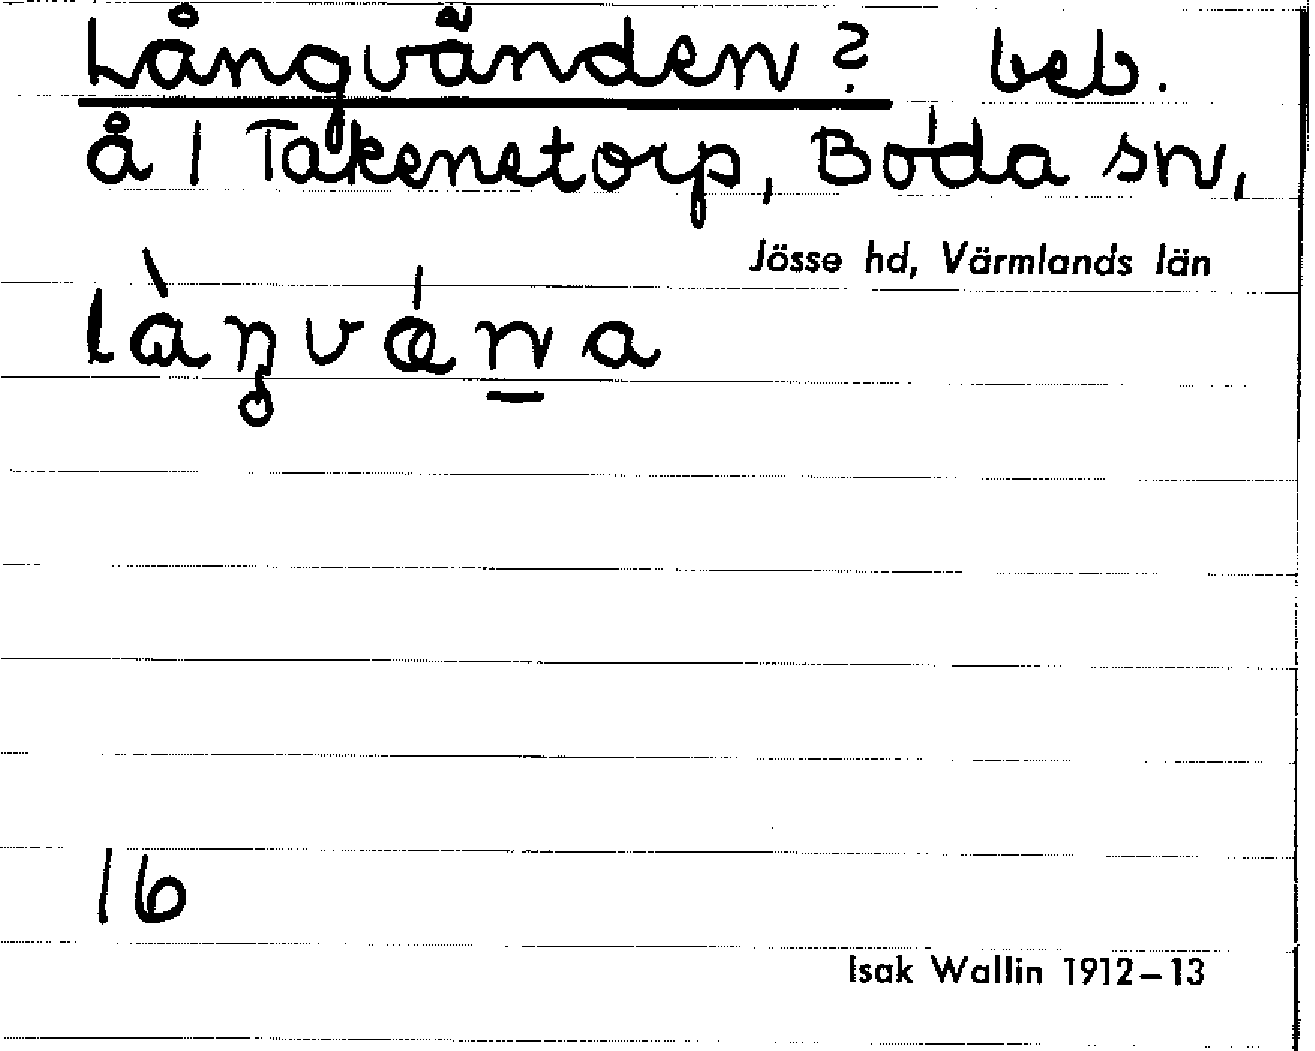 Långvånden? beb.
å 1 Takenetorp, Boda sn,
Jösse hd, Värmlands län
16
Isak Wallin 1912–13